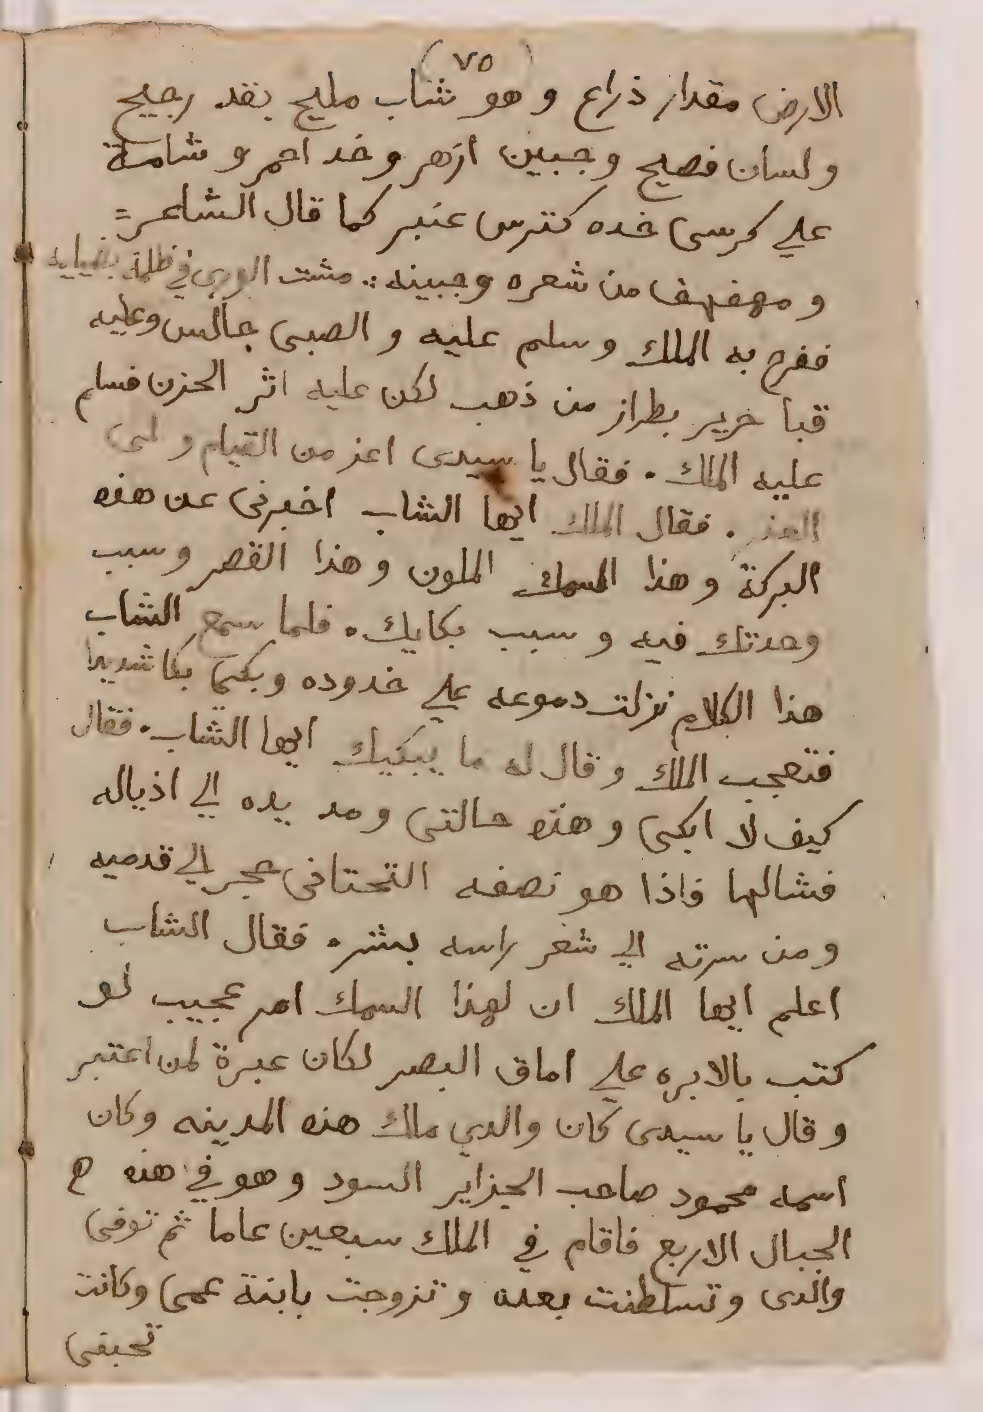 (٧٥)
الارض مقدار ذراع و هو شاب مليح بقد رجيح
و لسان فصيح و جبين ازهر و خد احمر و شامة
علي كرسى خده كترس عنبر كما قال الشاعر =
و مهفهف من شعره و جبينه ∴ مشت الورى في ظلمة بضيايه
ففرح به الملك و سلم عليه و الصبى جالس وعليه
قبا حرير بطراز من ذهب لكن عليه اثر الحزن فسلم
عليه الملك . فقال يا سيدى اعز من القيام و لى
العذر . فقال الملك ايها الشاب اخبرنى عن هذه
البركة و هذا السمك الملون و هذا القصر و سبب
وحدتك فيه و سبب بكايك . فلما سمع الشاب
هذا الكلام نزلت دموعه علي خدوده و بكى بكا شديدا
فتعجب الملك و قال له ما يبكيك ايها الشاب . فقال
كيف لا ابكى و هذه حالتى و مد يده الي اذياله
فشالها فاذا هو نصفه التحتانى حجر الي قدميه
و من سرته الي شعر راسه بشر . فقال الشاب
اعلم ايها الملك ان لهذا السمك امر عجيب لو
كتب بالابره علي اماق البصر لكان عبرة لمن اعتبر
و قال يا سيدى كان والدي ملك هذه المدينه وكان
اسمه محمود صاحب الجزاير السود و هو في هذه
الجبال الاربع فاقام في الملك سبعين عاما ثم توفى
والدى و تسلطنت بعده و تزوجت بابنة عمى وكانت
تحبنى